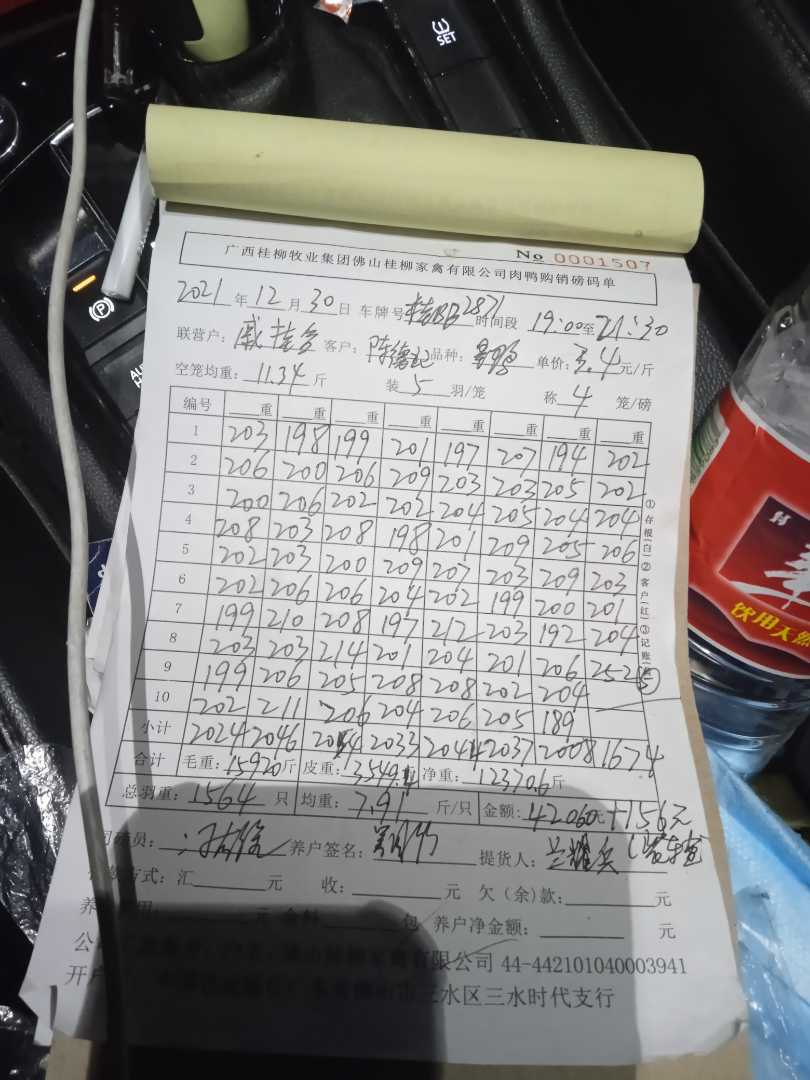 SET
No 0001507
广西桂柳牧业集团佛山桂柳家禽有限公司肉鸭购销磅码单
2021年12月30日 车牌号 2871 时间段 19:00至21:30
联营户: 客户: 品种: 单价:3.4元/斤
空笼均重:11.34斤 装5羽/笼 称4笼/磅
编号 重 重 重 重 重 重 重 重
1 203 198 199 201 197 207 194 202
2 206 200 206 209 203 203 205 202
3 200 206 202 202 204 205 204 204
4 208 203 208 198 201 209 205 206
5 202 203 200 209 207 203 209 203
6 202 206 206 204 202 199 200 201
7 199 210 208 197 212 203 192 204
8 203 203 214 201 204 201 206 252 ⑤
9 199 206 205 208 208 202 204
10 202 211 206 204 206 205 189
小计 2024 2046 2054 2033 2044 2037 2008 1674
合计 毛重:15920斤 皮重:3549.4 净重:12370.6斤
总羽重:1564只 均重:7.91斤/只 金额:42060+156元
员: 养户签名: 提货人:
方式:汇 元 收: 元 欠(余)款: 元
养 元 包 养户净金额: 元
公 有限公司 44-442101040003941
开户 三水区三水时代支行
①存根(白)②客户(红)③记账
饮用天然